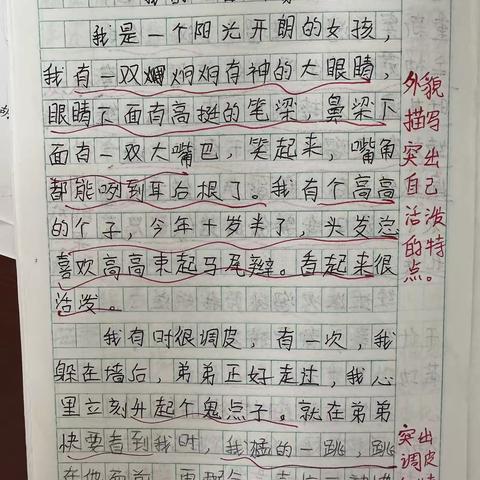 我是一个阳光开朗的女孩，
我有一双炯炯有神的大眼睛，
眼睛下面有高挺的笔梁，鼻梁下
面有一双大嘴巴，笑起来，嘴角
都能咧到耳后根了。我有个高高
的个子，今年十岁半了，头发总
喜欢高高束起马尾辫。看起来很
活泼。
我有时很调皮，有一次，我
躲在墙后，弟弟正好走过，我心
里立刻升起个鬼点子。就在弟弟
快要看到我时，我猛的一跳，跳
在他面前
外貌
描写
突出
自己
活泼
的特
点。
突出
调皮